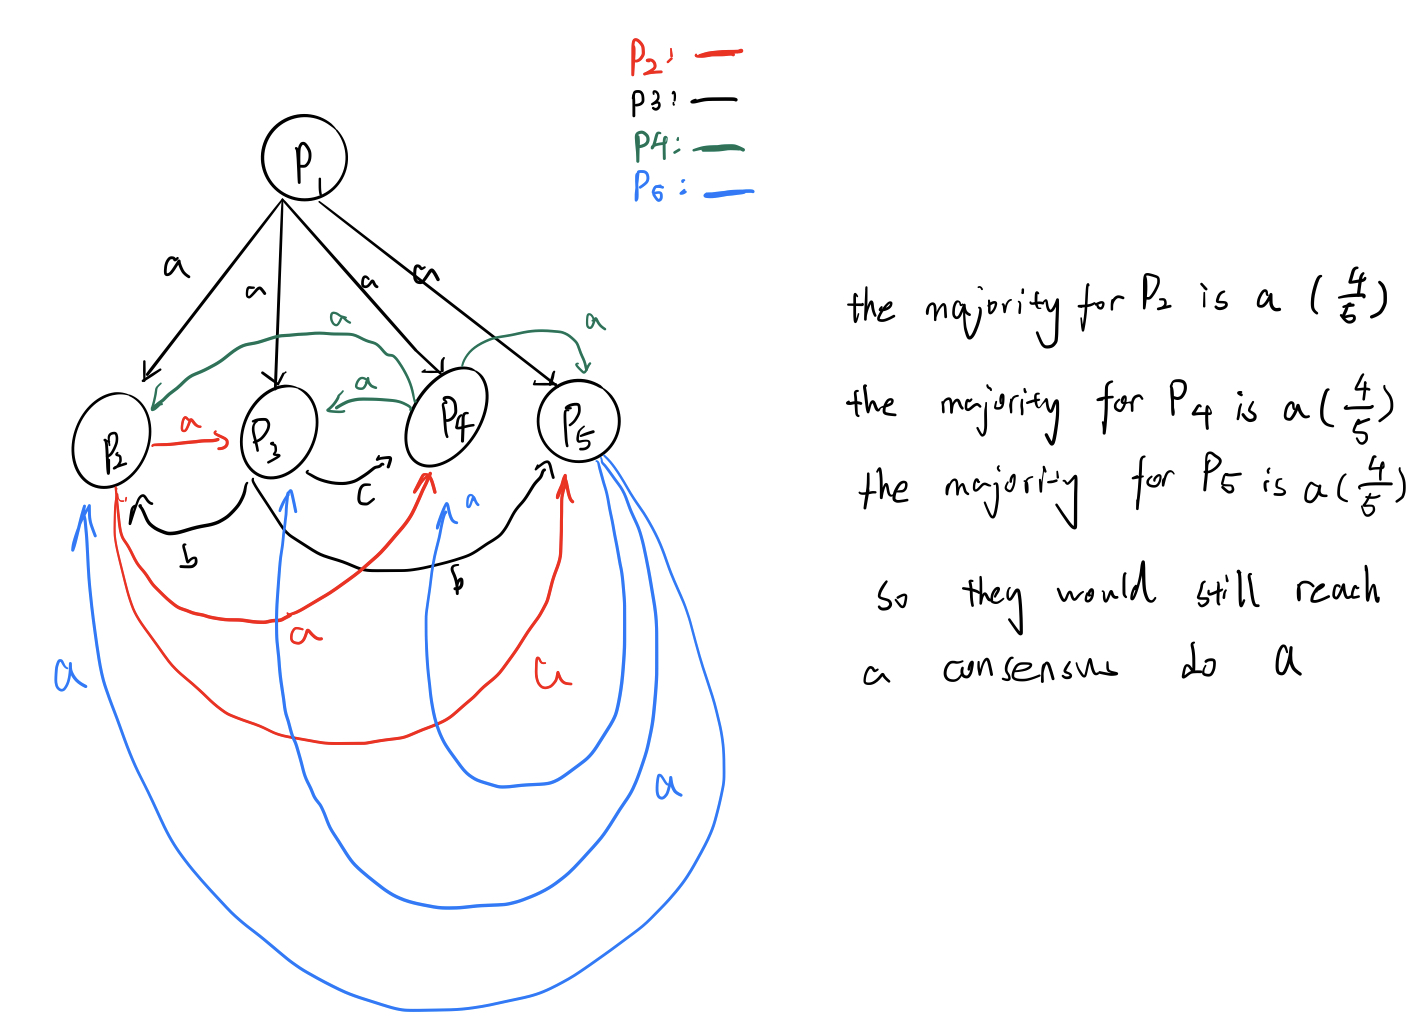 P2:
P3:
P4:
P6:
P1
a
a
a
a
a
a
a
a
P2
P3
P4
P5
c
b
b
a
a
a
a
a
the majority for P2 is a (4/5)
the majority for P4 is a (4/5)
the majority for P5 is a (4/5)
so they would still reach
a consensus do a